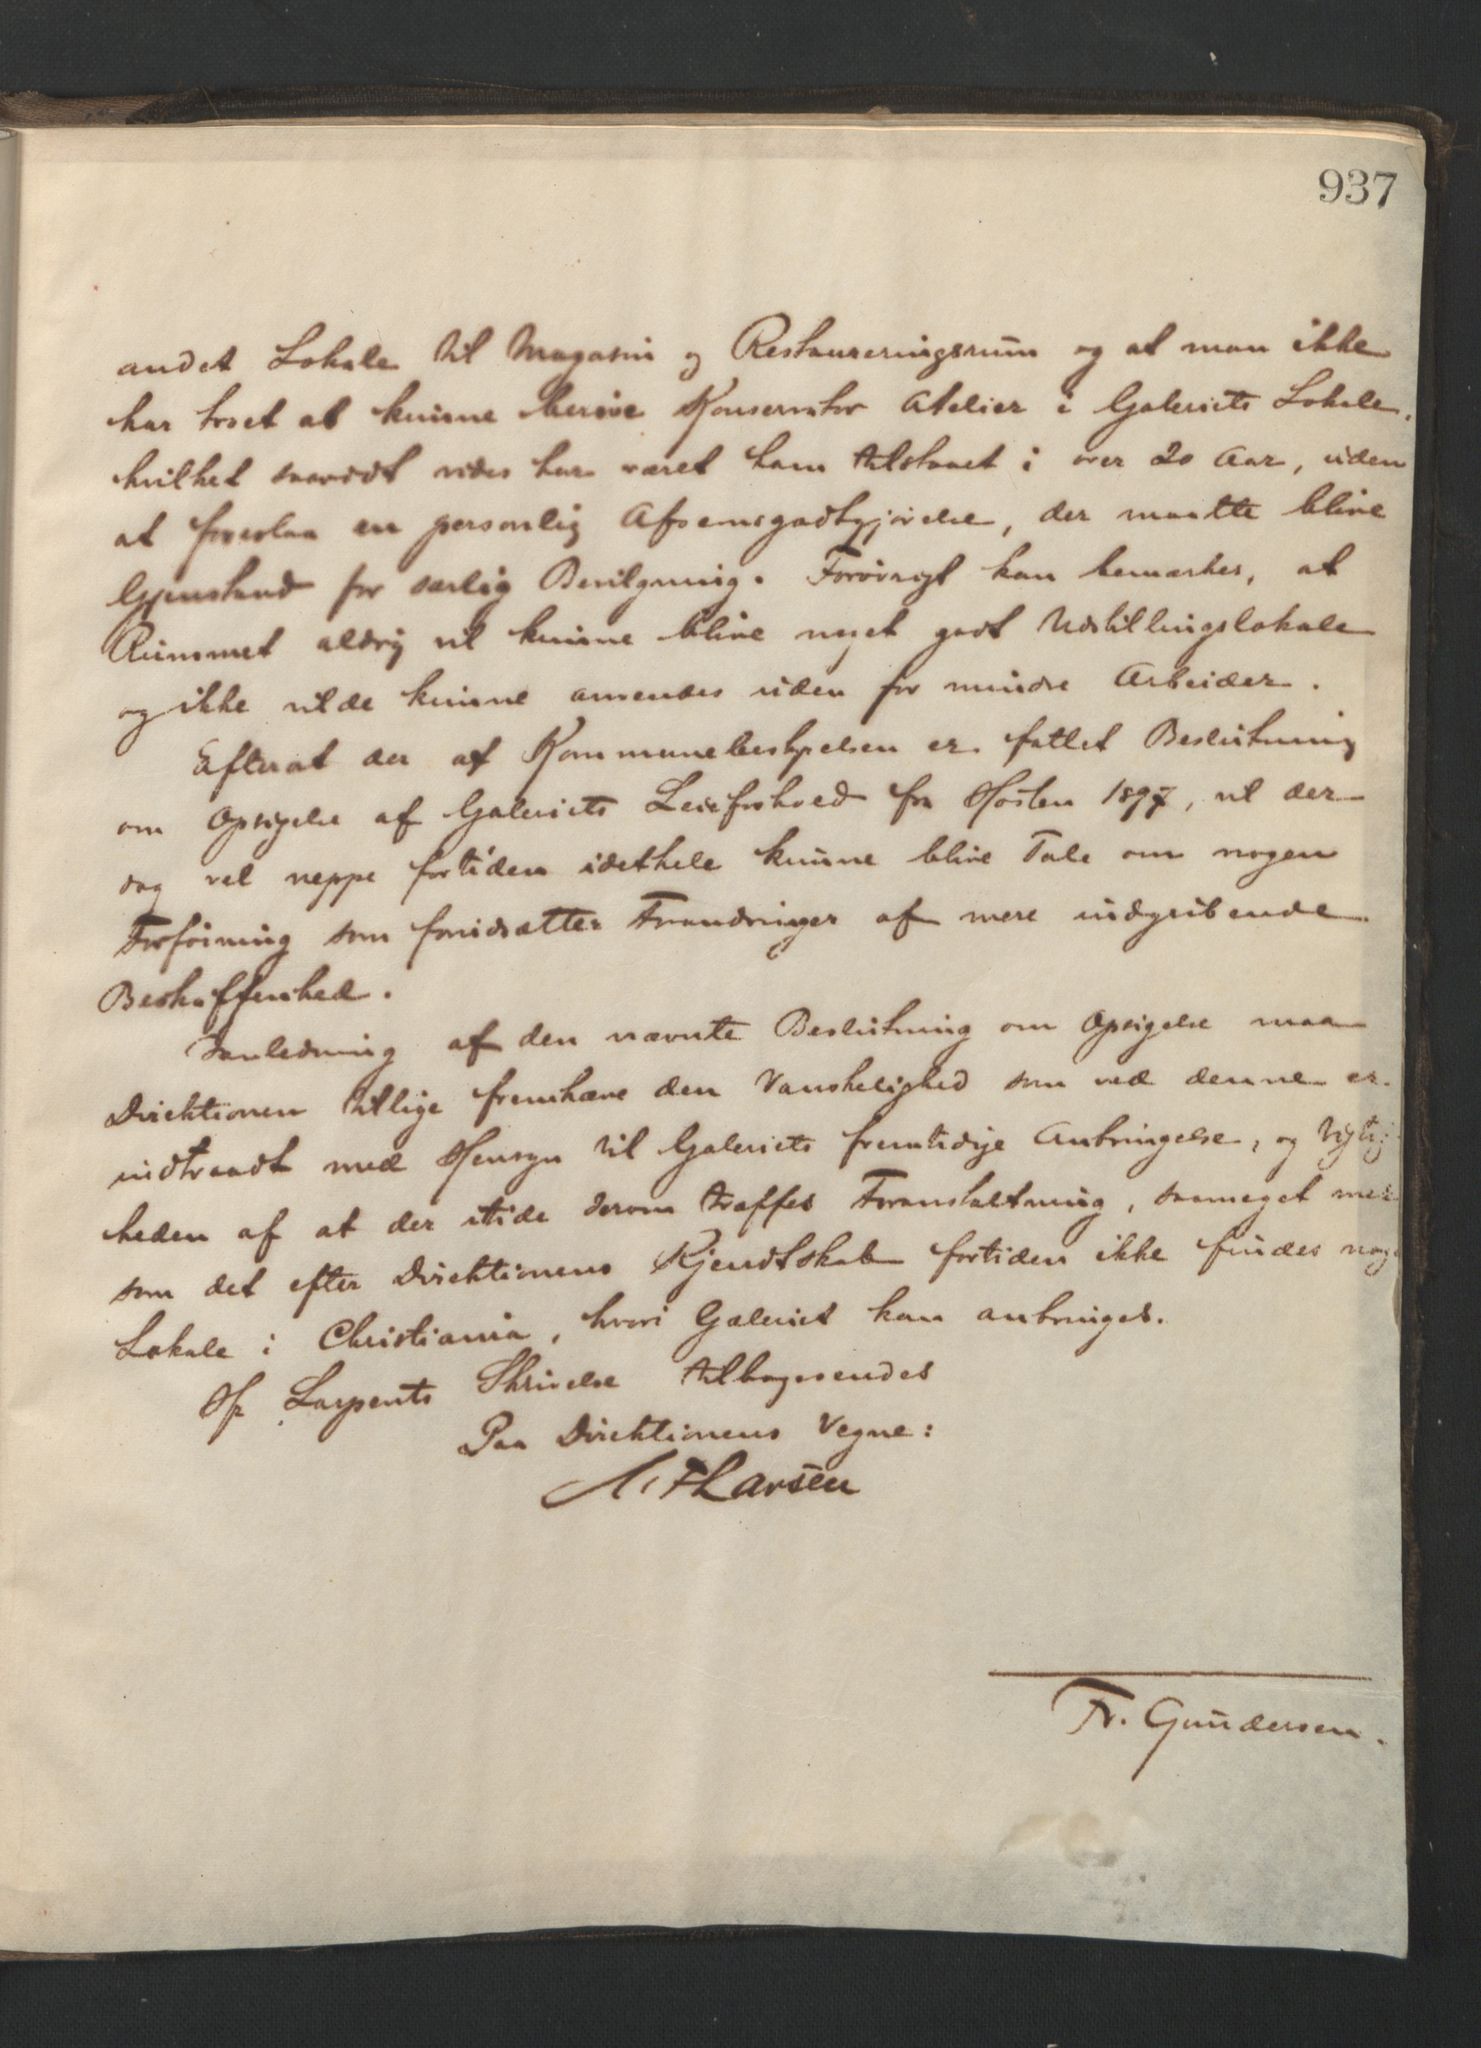 937
andet Lokale til Magasin og Restaureringsrum og at man ikke
har troet at kunne berøve Konservator Atelier i Galeriets Lokale,
hvilket saavidt vides har været ham tilstaaet i over 20 Aar, uden
at foreslaa en personlig Afsavnsgodtgjørelse, der maatte blive
Gjenstand for særlig Bevilgning. Forøvrigt kan bemærkes, at
Rummet aldrig vil kunne blive noget godt Udstillingslokale
og ikke vilde kunne anvendes uden for mindre Arbeider.
Efterat der af Kommunebestyrelsen er fattet Beslutning
om Opsigelse af Galeriets Leieforhold fra Høsten 1897, vil der
dog vel neppe fortiden idethele kunne blive Tale om nogen
Forføining som forudsætter Forandringer af mere indgribende
Beskaffenhed.
Ianledning af den nævnte Beslutning om Opsigelse maa
Direktionen tillige fremhæve den Vanskelighed som ved denne er
indtraadt med Hensyn til Galeriets fremtidige Anbringelse, og Vigtig
heden af at der itide derom træffes Foranstaltning, saameget mer
som det efter Direktionens Kjendtskab fortiden ikke findes nog
Lokale i Christiania, hvori Galeriet kan anbringes.
Hr Larpents Skrivelse tilbagesendes
Paa Direktionens Vegne:
A. T Larsen
Fr. Gundersen.